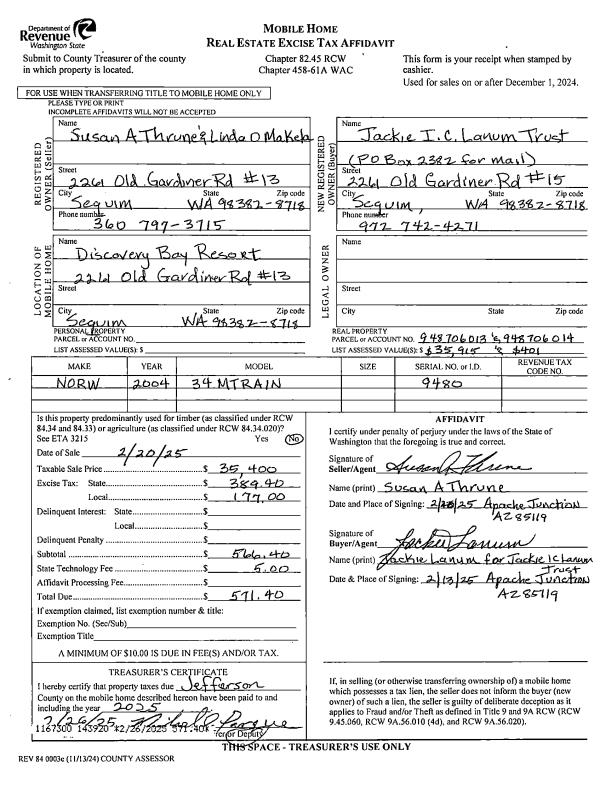 Department of
Revenue
Washington State
MOBILE HOME
REAL ESTATE EXCISE TAX AFFIDAVIT
Submit to County Treasurer of the county
in which property is located.
Chapter 82.45 RCW
Chapter 458-61A WAC
This form is your receipt when stamped by
cashier.
Used for sales on or after December 1, 2024.
FOR USE WHEN TRANSFERRING TITLE TO MOBILE HOME ONLY
PLEASE TYPE OR PRINT
INCOMPLETE AFFIDAVITS WILL NOT BE ACCEPTED
REGISTERED OWNER (Seller)
Name
Susan A Thrune & Linda D Makela
Street
2261 Old Gardiner Rd #13
City State Zip code
Sequim WA 98382-8718
Phone number
360 797-3715
NEW REGISTERED OWNER (Buyer)
Name
Jackie I.C. Lanum Trust
(PO Box 2382 for mail)
Street
2261 Old Gardiner Rd #15
City State Zip code
Sequim, WA 98382-8718
Phone number
972 742-4271
LOCATION OF MOBILE HOME
Name
Discovery Bay Resort
2261 Old Gardiner Rd #13
Street
City State Zip code
Sequim WA 98382-8718
LEGAL OWNER
Name
Street
City State Zip code
PERSONAL PROPERTY
PARCEL or ACCOUNT NO.
LIST ASSESSED VALUE(S): $
REAL PROPERTY
PARCEL or ACCOUNT NO. 948706013 & 948706014
LIST ASSESSED VALUE(S): $ $35,915 & $401
MAKE YEAR MODEL SIZE SERIAL NO. or I.D. REVENUE TAX CODE NO.
NORW 2004 34 MTRAIN 9480
Is this property predominantly used for timber (as classified under RCW
84.34 and 84.33) or agriculture (as classified under RCW 84.34.020)?
See ETA 3215 Yes No
Date of Sale 2/20/25
Taxable Sale Price $ 35,400
Excise Tax: State $ 389.40
Local $ 177.00
Delinquent Interest: State $
Local $
Delinquent Penalty $
Subtotal $ 566.40
State Technology Fee $ 5.00
Affidavit Processing Fee $
Total Due $ 571.40
If exemption claimed, list exemption number & title:
Exemption No. (Sec/Sub)
Exemption Title
A MINIMUM OF $10.00 IS DUE IN FEE(S) AND/OR TAX.
AFFIDAVIT
I certify under penalty of perjury under the laws of the State of
Washington that the foregoing is true and correct.
Signature of
Seller/Agent Susan A Thrune
Name (print) Susan A Thrune
Date and Place of Signing: Apache Junction
AZ 85119
Signature of
Buyer/Agent Jackie Lanum
Name (print) Jackie Lanum for Jackie IC Lanum
Trust
Date & Place of Signing: 2/13/25 Apache Junction
AZ 85119
TREASURER'S CERTIFICATE
I hereby certify that property taxes due Jefferson
County on the mobile home described hereon have been paid to and
including the year 2025
2/26/25
1167300 143920 *2/26/2025 571.40*
or Deputy
If, in selling (or otherwise transferring ownership of) a mobile home
which possesses a tax lien, the seller does not inform the buyer (new
owner) of such a lien, the seller is guilty of deliberate deception as it
applies to Fraud and/or Theft as defined in Title 9 and 9A RCW (RCW
9.45.060, RCW 9A.56.010 (4d), and RCW 9A.56.020).
THIS SPACE - TREASURER'S USE ONLY
REV 84 0003e (11/13/24) COUNTY ASSESSOR